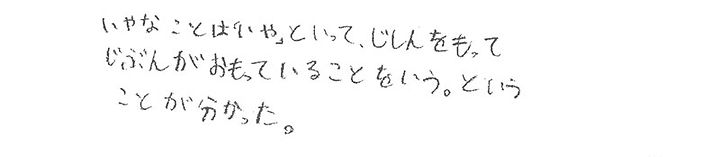 いやなことは「いや」といって、じしんをもって
じぶんがおもっていることをいう。という
ことが分かった。